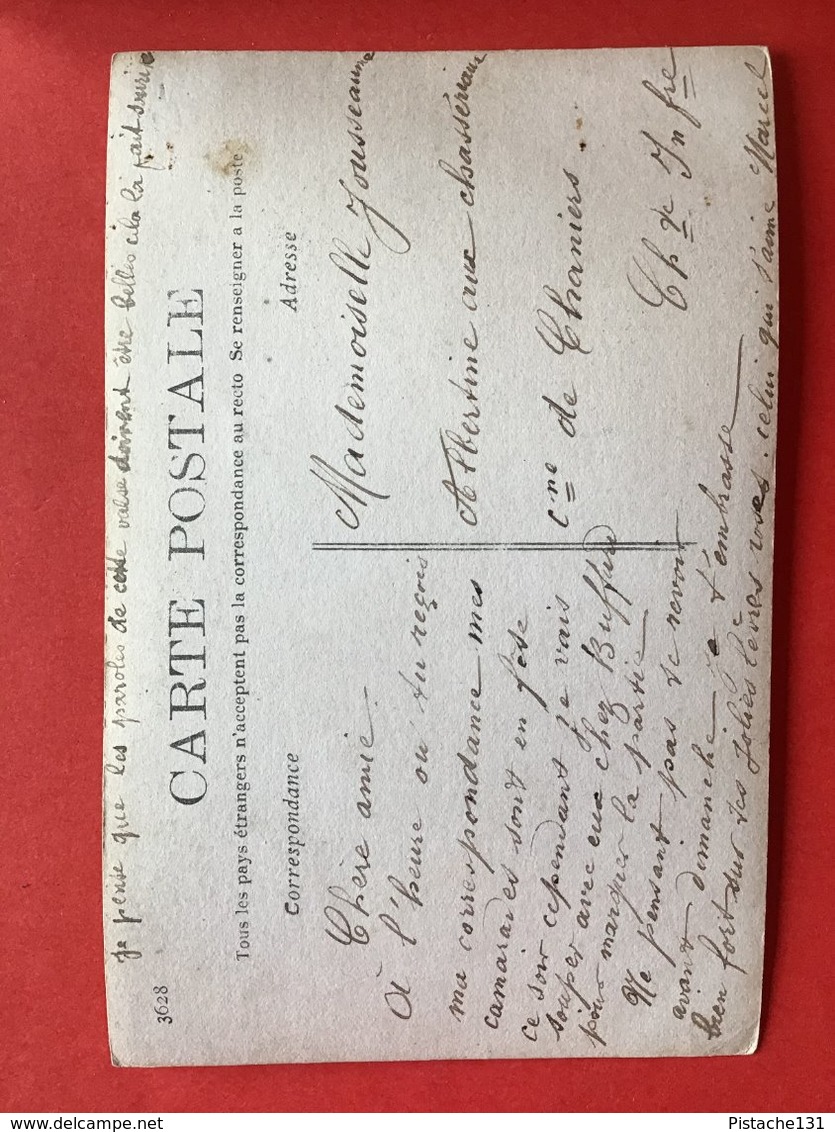 je pense que les paroles de cette valse doivent être belles cela la fait suivre
3628
CARTE POSTALE
Tous les pays étrangers n'acceptent pas la correspondance au recto Se renseigner a la poste
Correspondance
Adresse
Chère amie.
A l'heure où tu reçois
ma correspondance mes
camarades sont en fête
ce soir cependant je vais
souper avec eux chez Buffard
pour marquer la partie
Ne pensant pas te revoir
avant dimanche je t'embrasse
bien fort sur tes jolies lèvres roses. celui qui t'aime Marcel
Mademoiselle Jousseaume
Albertine aux chasseriaux
Cne de Chaniers.
Ch te Infre
Delcampe.net
Pistache131